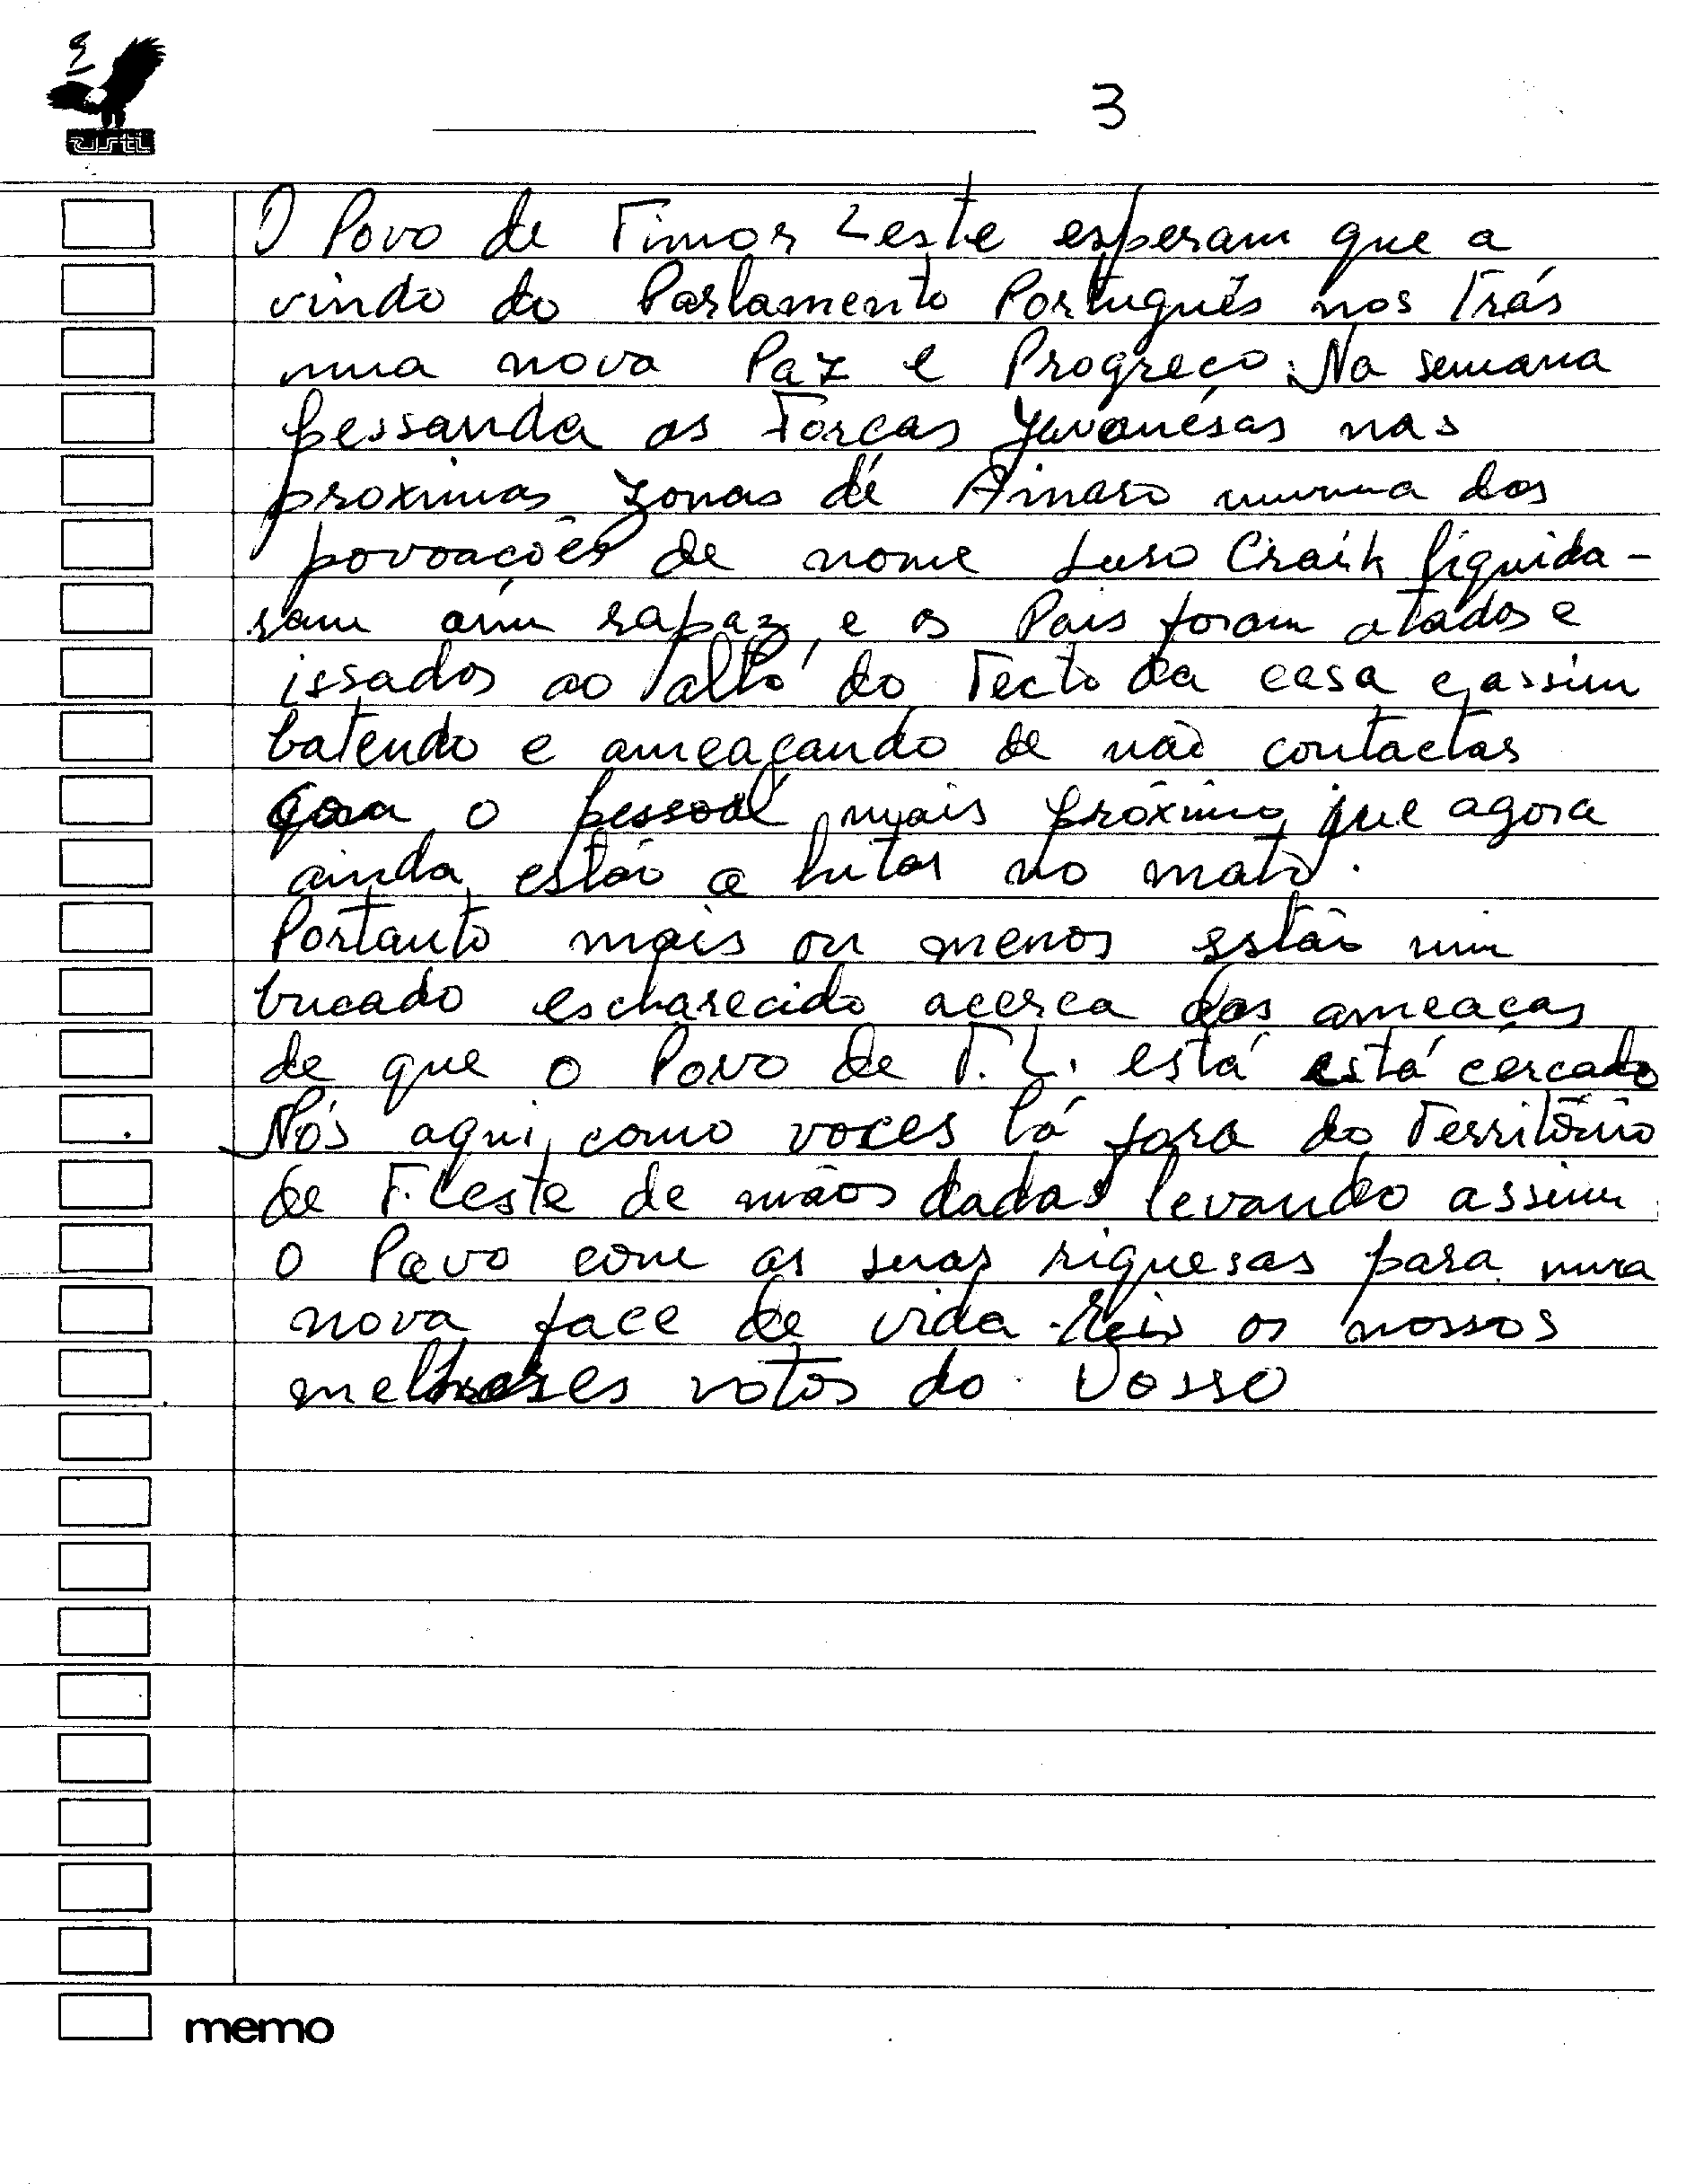 3
O Povo de Timor Leste esperam que a
vindo do Parlamento Português nos Trás
nua nova Paz e Progreço. Na semana
pessanda as Forcas Javanésas nas
proximas zonas de Ainaro numa das
povoações de nome Luso Craik liquida-
ram um rapaz, e os Pais foram atados e
issados ao alto do Tecto da casa e, assim
batendo e ameaçando de não contactar
o pessoal mais próximo, que agora
ainda estão a lutar no mato.
Portanto mais ou menos estão um
bucado escharecido acerca das ameaças
de que o Povo de T.L. está está cercado
Nós aqui, como voces lá fora do Território
de T.Leste de mãos dadas levando assim
o Povo com as suas riquesas para nura
nova face de vida. Reis os nossos
melhores votos do Vosso
memo